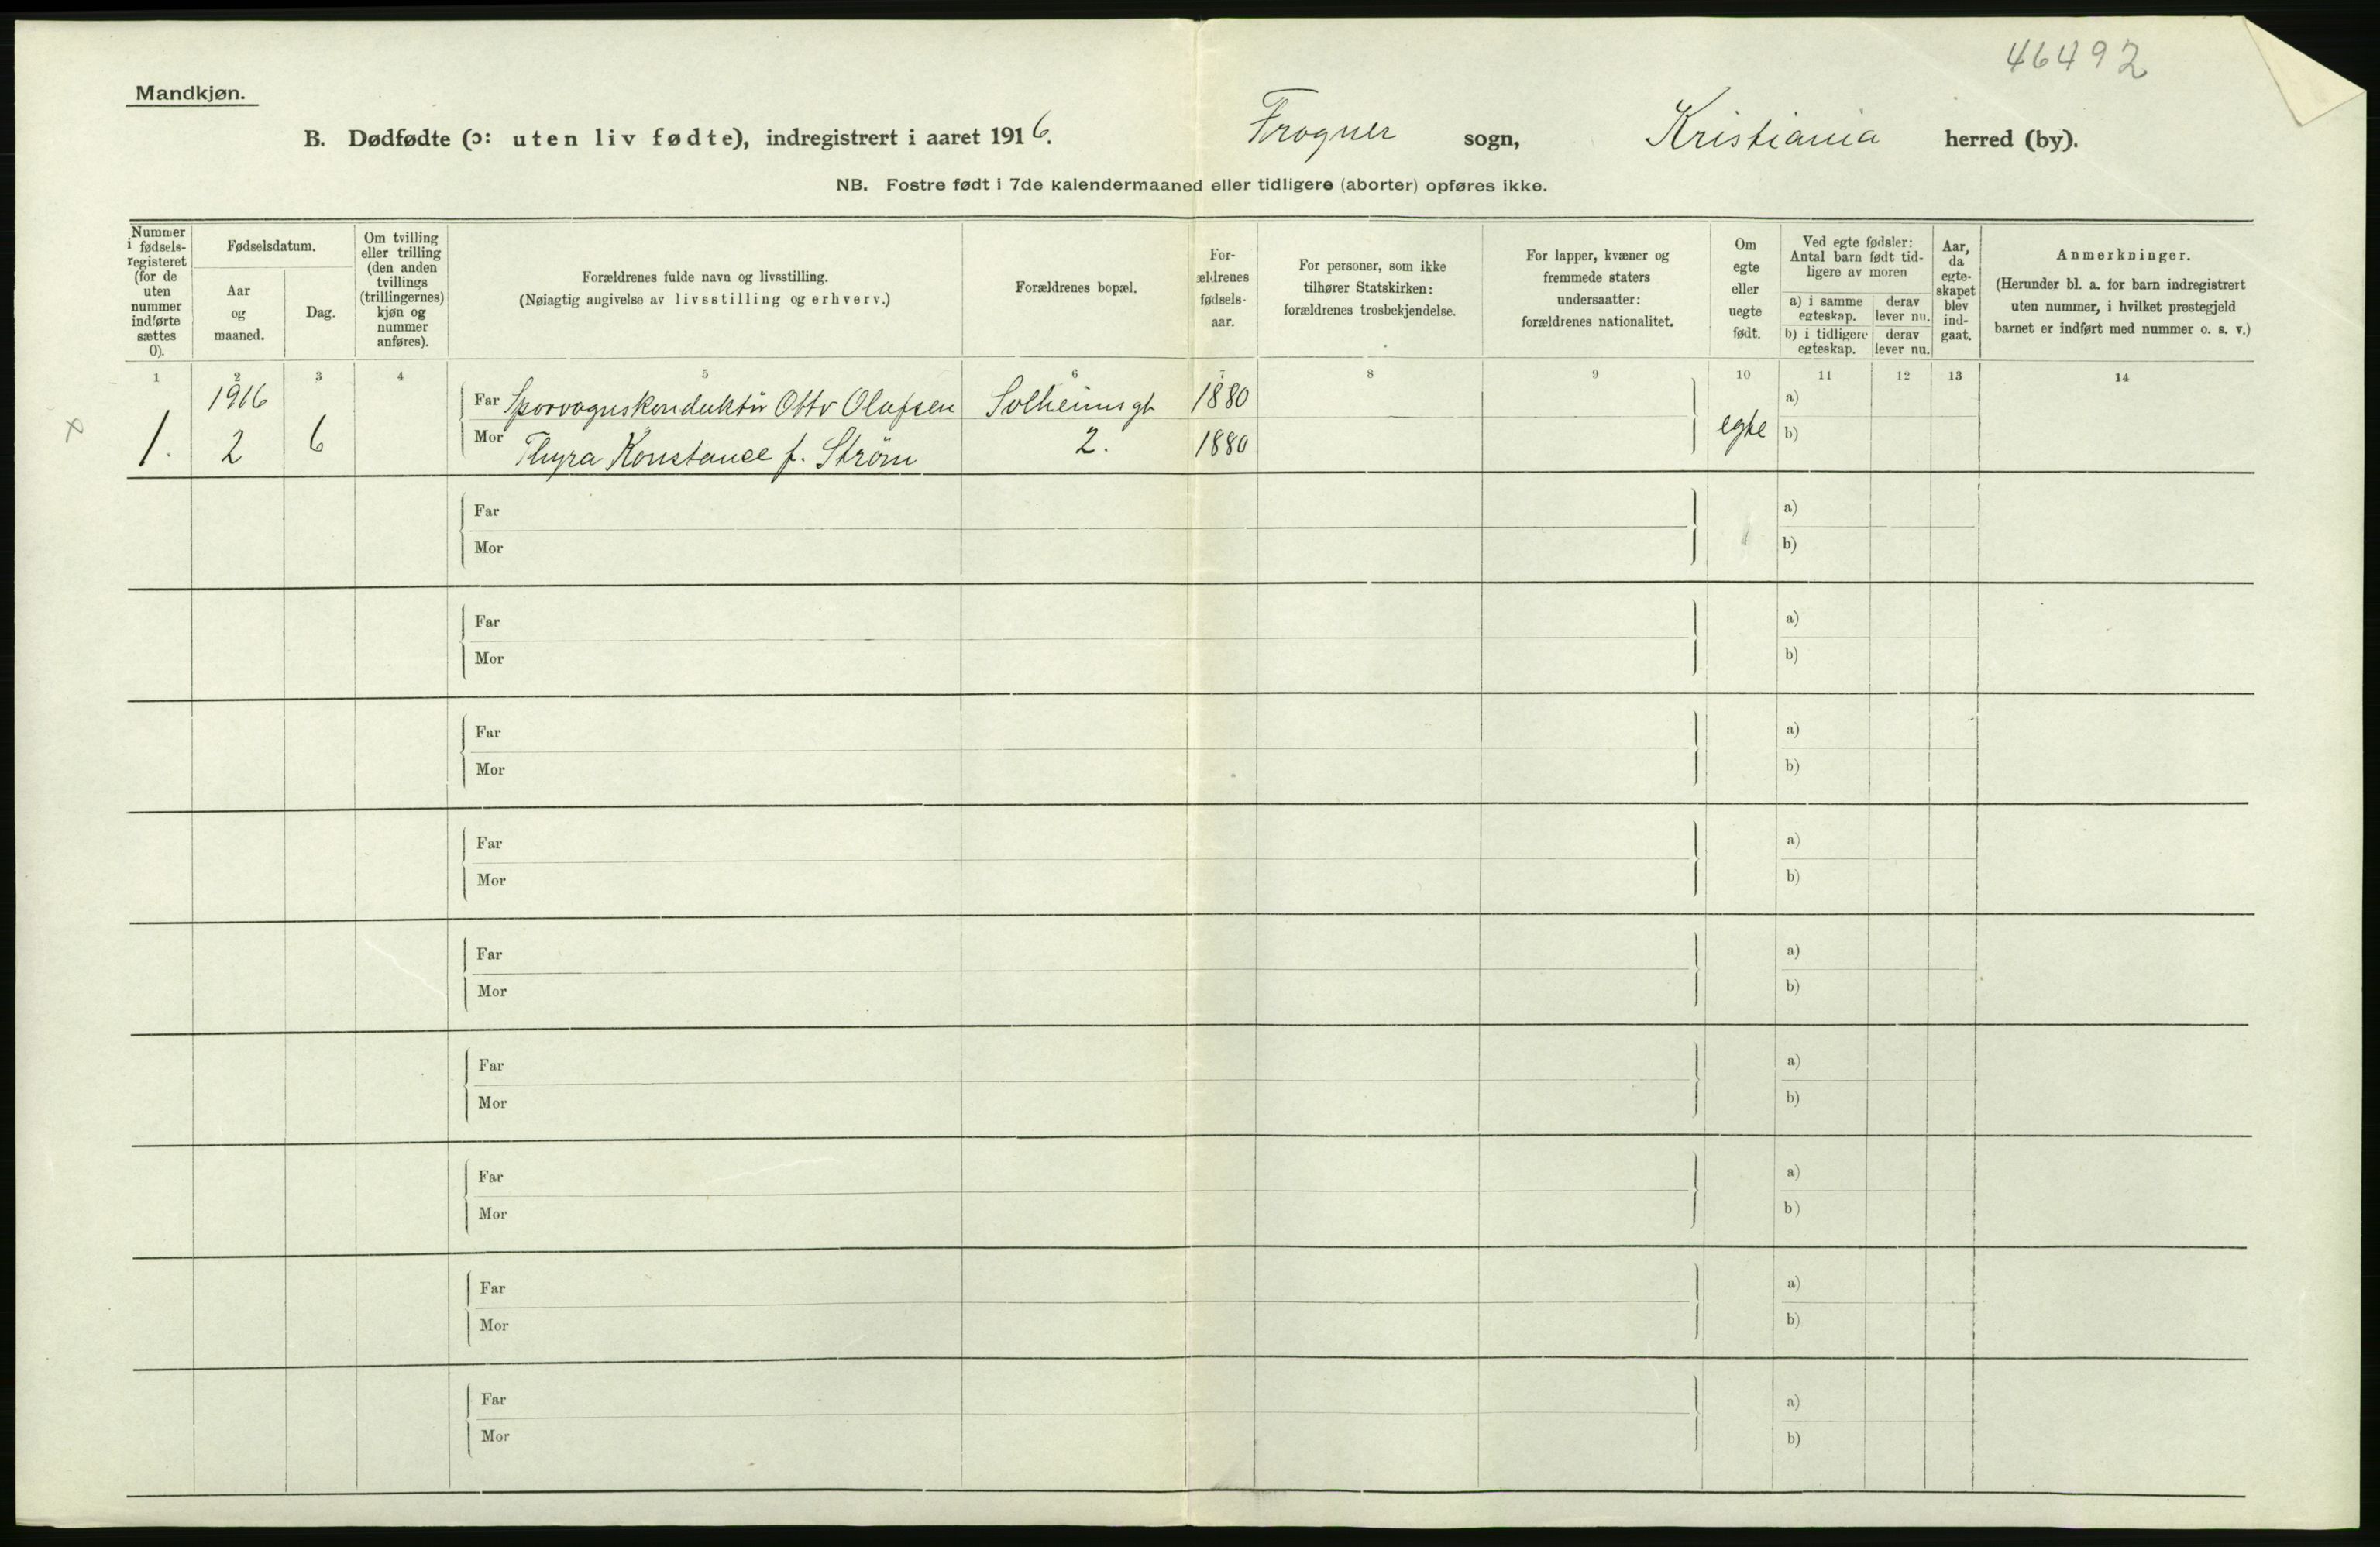 46492
Mandkjøn.
B. Dødfødte (ɔ: uten liv fødte), indregistrert i aaret 1916. Frogner sogn, Kristiania herred (by).
NB. Fostre født i 7de kalendermaaned eller tidligere (aborter) opføres ikke.
Nummer i fødsels-registeret (for de uten nummer indførte sættes 0).
Fødselsdatum.
Aar og maaned.
Dag.
Om tvilling eller trilling (den anden tvillings (trillingernes) kjøn og nummer anføres).
Forældrenes fulde navn og livsstilling.
(Nøiagtig angivelse av livsstilling og erhverv.)
Forældrenes bopæl.
For-ældrenes fødsels-aar.
For personer, som ikke tilhører Statskirken: forældrenes trosbekjendelse.
For lapper, kvæner og fremmede staters undersaatter: forældrenes nationalitet.
Om egte eller uegte født.
Ved egte fødsler: Antal barn født tid-ligere av moren
a) i samme egteskap.
derav lever nu.
b) i tidligere egteskap.
derav lever nu.
Aar, da egte-skapet blev ind-gaat.
Anmerkninger.
(Herunder bl. a. for barn indregistrert uten nummer, i hvilket prestegjeld barnet er indført med nummer o. s. v.)
1 2 3 4 5 6 7 8 9 10 11 12 13 14
1916
Far Sporvognskonduktør Otto Olafsen Solheimsgt 1880 a)
x 1. 2 6 Mor Thyra Konstance f. Strøm 2. 1880 egte b)
Far a)
Mor b)
Far a)
Mor b)
Far a)
Mor b)
Far a)
Mor b)
Far a)
Mor b)
Far a)
Mor b)
Far a)
Mor b)
Far a)
Mor b)
Far a)
Mor b)